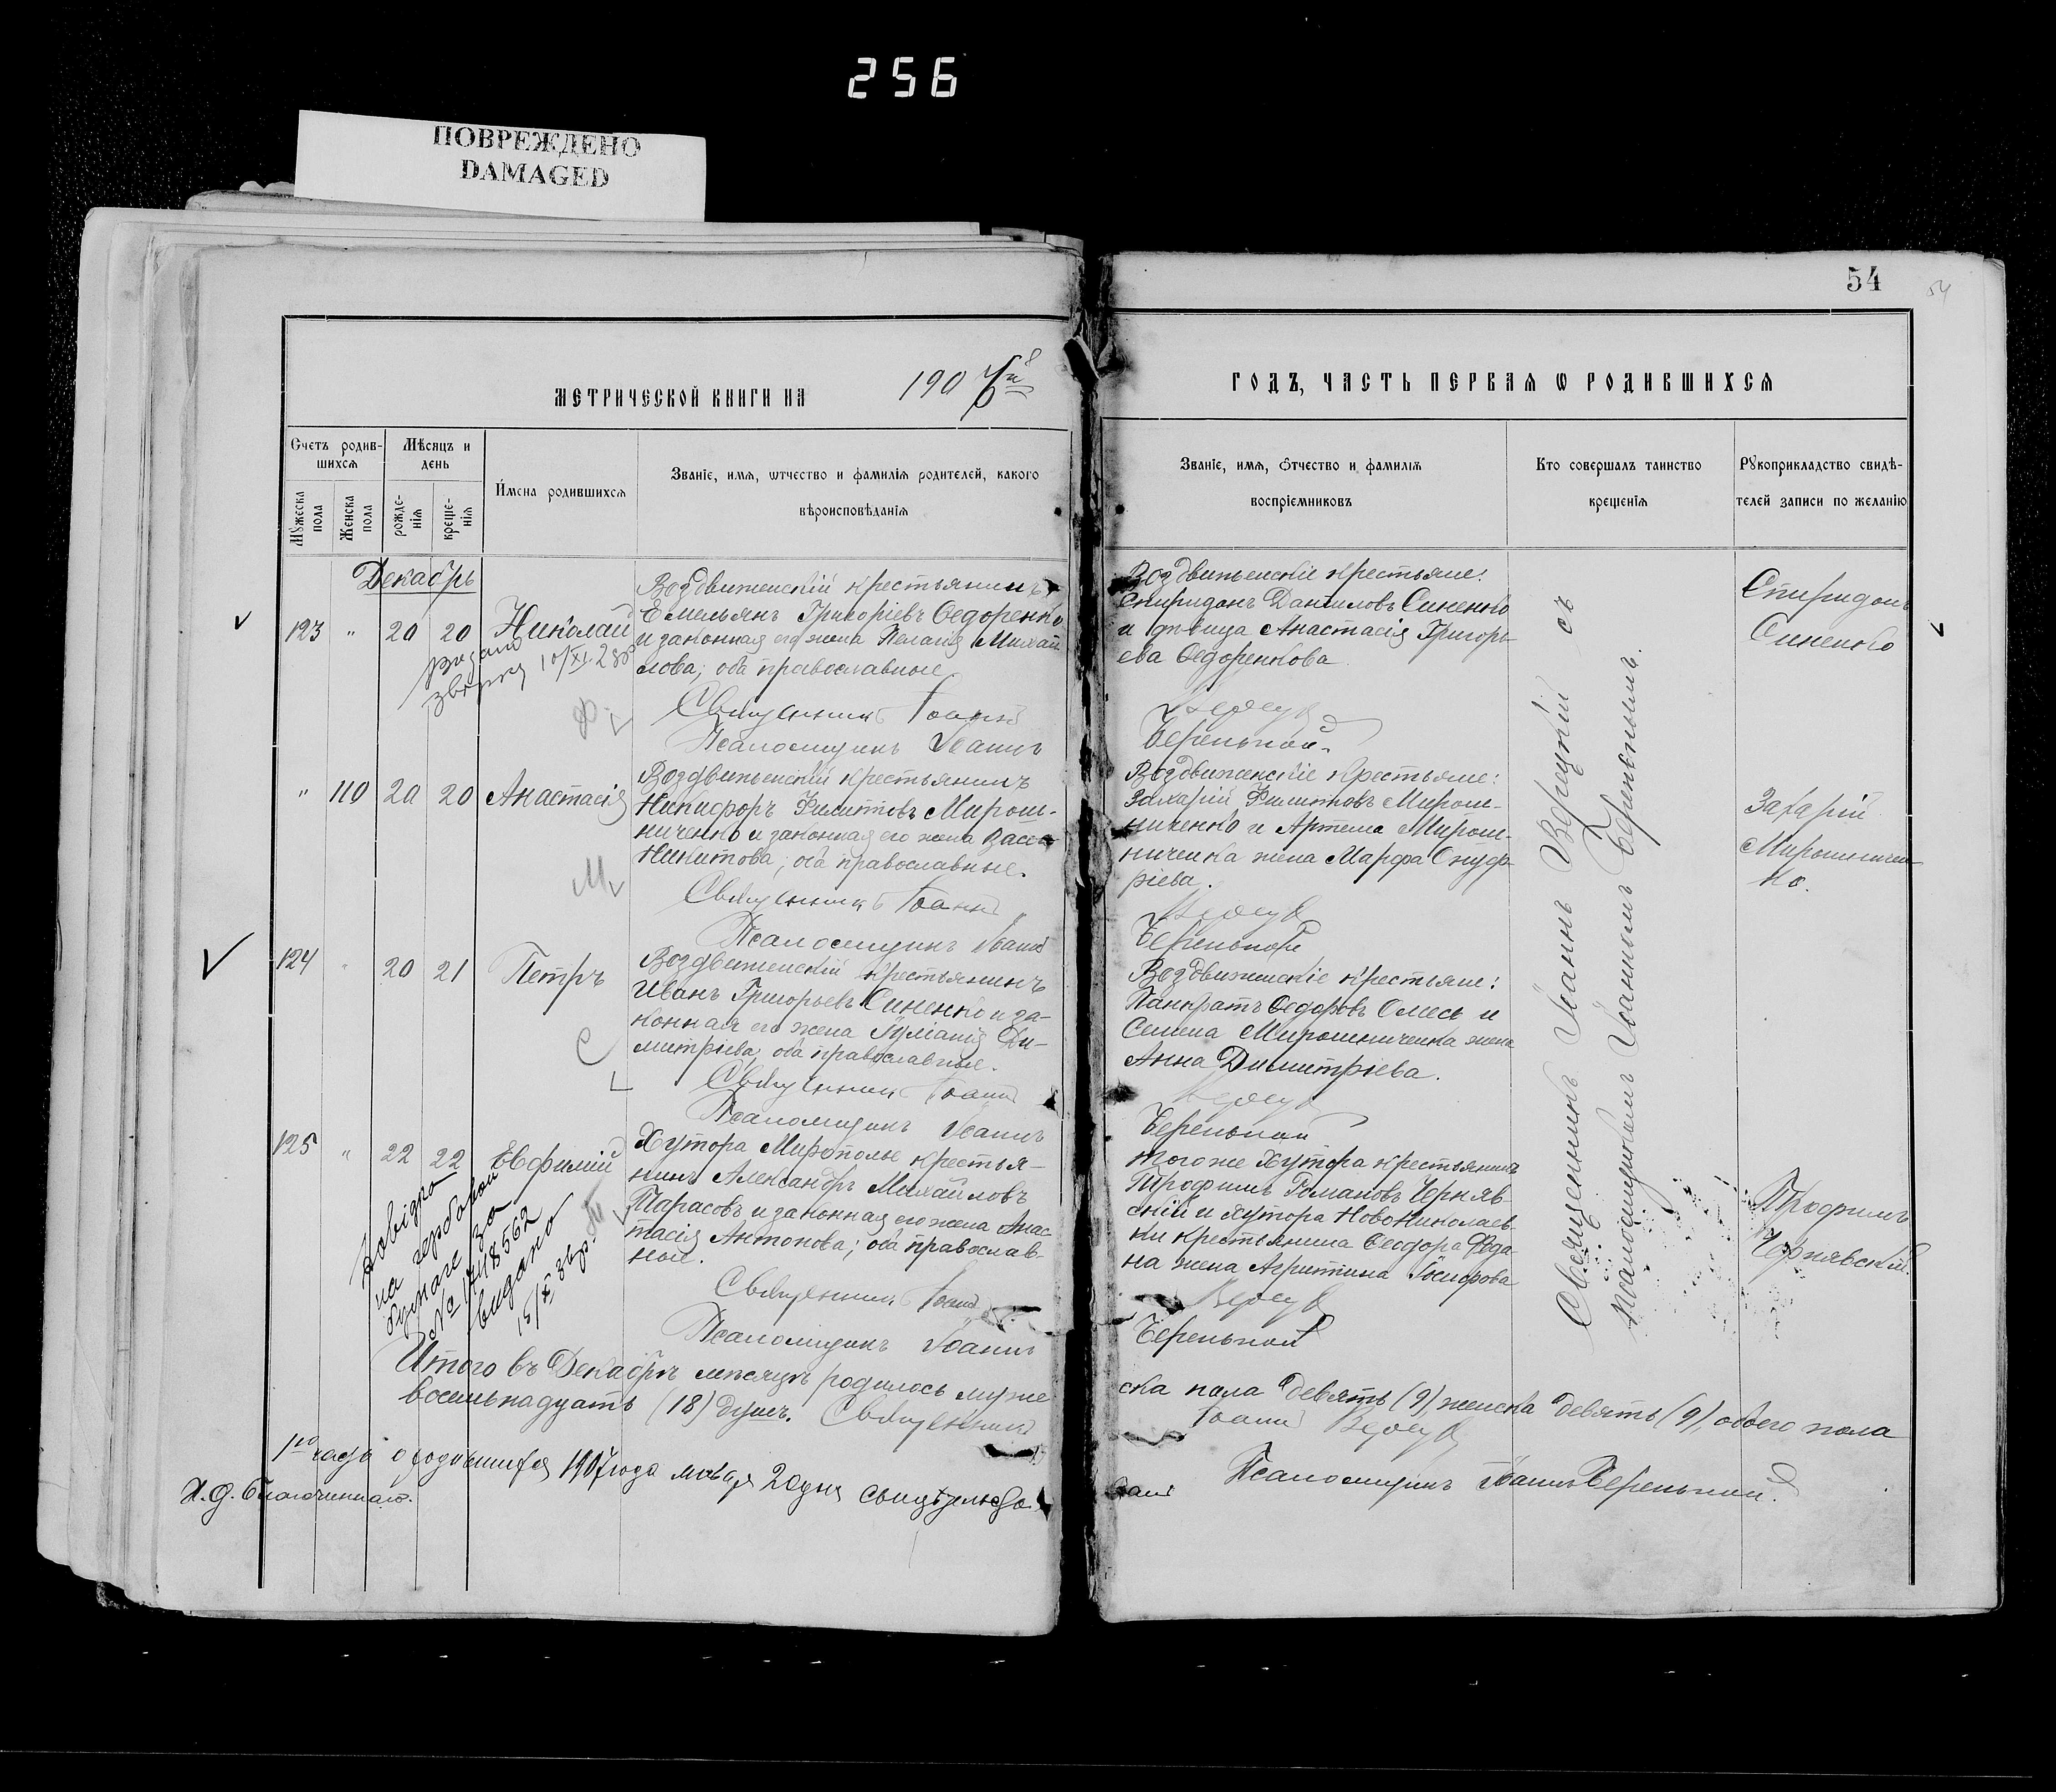 256
ПОВРЕЖДЕНО
DAMAGED
54
54
МЕТРИЧЕСКОЙ КНИГИ НА 190
ГОДЪ, ЧАСТЬ ПЕРВАЯ Ѡ РОДИВШИХСЯ
Счетъ родив-
шихся
Мѣсяцъ и
день
Мужеска
пола
Женска
пола
рожде-
нія
креще-
нія
Имена родившихся
Званіе, имя, ѿтчество и фамилія родителей, какого
вѣроисповѣданія
Званіе, имя, ѻтчество и фамилія
воспріемниковъ
Кто совершалъ таинство
крещенія
Рукоприкладство свидѣ-
телей записи по желанію
Декабрь
123 " 20 20 Николай
Воздвиженскій крестьянинъ
Емельянъ Григоріевъ Ѳедоренко
и законная его жена Пелагія Михай-
лова; оба православные
Священникъ Іоаннъ
Псаломщикъ Іоаннъ
Воздвиженскіе крестьяне:
Спиридонъ Даниловъ Синенко
и дѣвица Анастасія Григорь-
ева Ѳедоренкова
Верецкій
Береньной.
Спиридонъ
Синенко
" 110 20 20 Анастасія
Воздвиженскій крестьянинъ
Никифоръ Филитовъ Мирош-
ниченко и законная его жена Васса
Никитова; оба православные.
Священникъ Іоаннъ
Псаломщикъ Іоаннъ
Воздвиженскіе крестьяне:
Захарій Филитовъ Мирош-
ниченко и Артема Мирош-
ниченка жена Марфа Онуф-
ріева.
Береньной
Захарій
Мирошничен-
ко.
124 " 20 21 Петръ
Воздвиженскій крестьянинъ
Иванъ Григорьевъ Синенко и за-
конная его жена Іуліанія Ди-
митріева, оба православные.
Священникъ Іоаннъ
Псаломщикъ Іоаннъ
Воздвиженскіе крестьяне:
Панкратъ Ѳедоровъ Олесь и
Семена Мирошниченка жена
Анна Димитріева.
Береньной
125 " 22 22 Евфимій
Хутора Мирополье крестья-
нинъ Александръ Михайловъ
Тарасовъ и законная его жена Анас-
тасія Антонова; оба православ-
ные.
Священникъ Іоаннъ
Псаломщикъ Іоаннъ
тогоже Хутора крестьянинъ
Трофимъ Романовъ Черняв-
скій и хутора Новониколаев-
ки крестьянина Ѳеодора
на жена Агрипина Іосифова
Береньной
Трофимъ
Чернявскій.
Довідка
на гербовой
бумаге за
№ 1748562
видано
Священникъ Іоаннъ Верецкій съ
Псаломщикомъ Іоанномъ Береньнымъ.
Итого въ Декабрѣ мѣсяцѣ родилось муже
ска пола девять (9) женска девять (9), обоего пола
восемьнадцать (18) душъ. Священникъ
Іоаннъ Верецкій
Псаломщикъ Іоаннъ Береньной.
1907 года 20 дня
И. д. Благочиннаго.